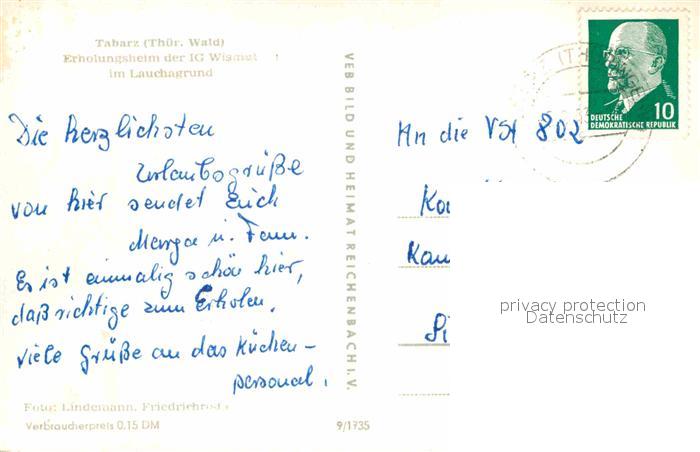 Tabarz (Thür. Wald)
Erholungsheim der IG Wismut
im Lauchagrund
Die herzlichsten
Urlaubsgrüße
von hier sendet Euch
Marga u. Fam.
Es ist einmalig schön hier,
daß richtige zum Erholen.
viele Grüße an das Küchen-
personal.
Foto: Lindemann, Friedrichro
Verbraucherpreis 0,15 DM
9/1735
VEB BILD UND HEIMAT REICHENBACH I. V.
DEUTSCHE
DEMOKRATISCHE REPUBLIK
10
An die VSt 802
Ka
Kau
Si
privacy protection
Datenschutz